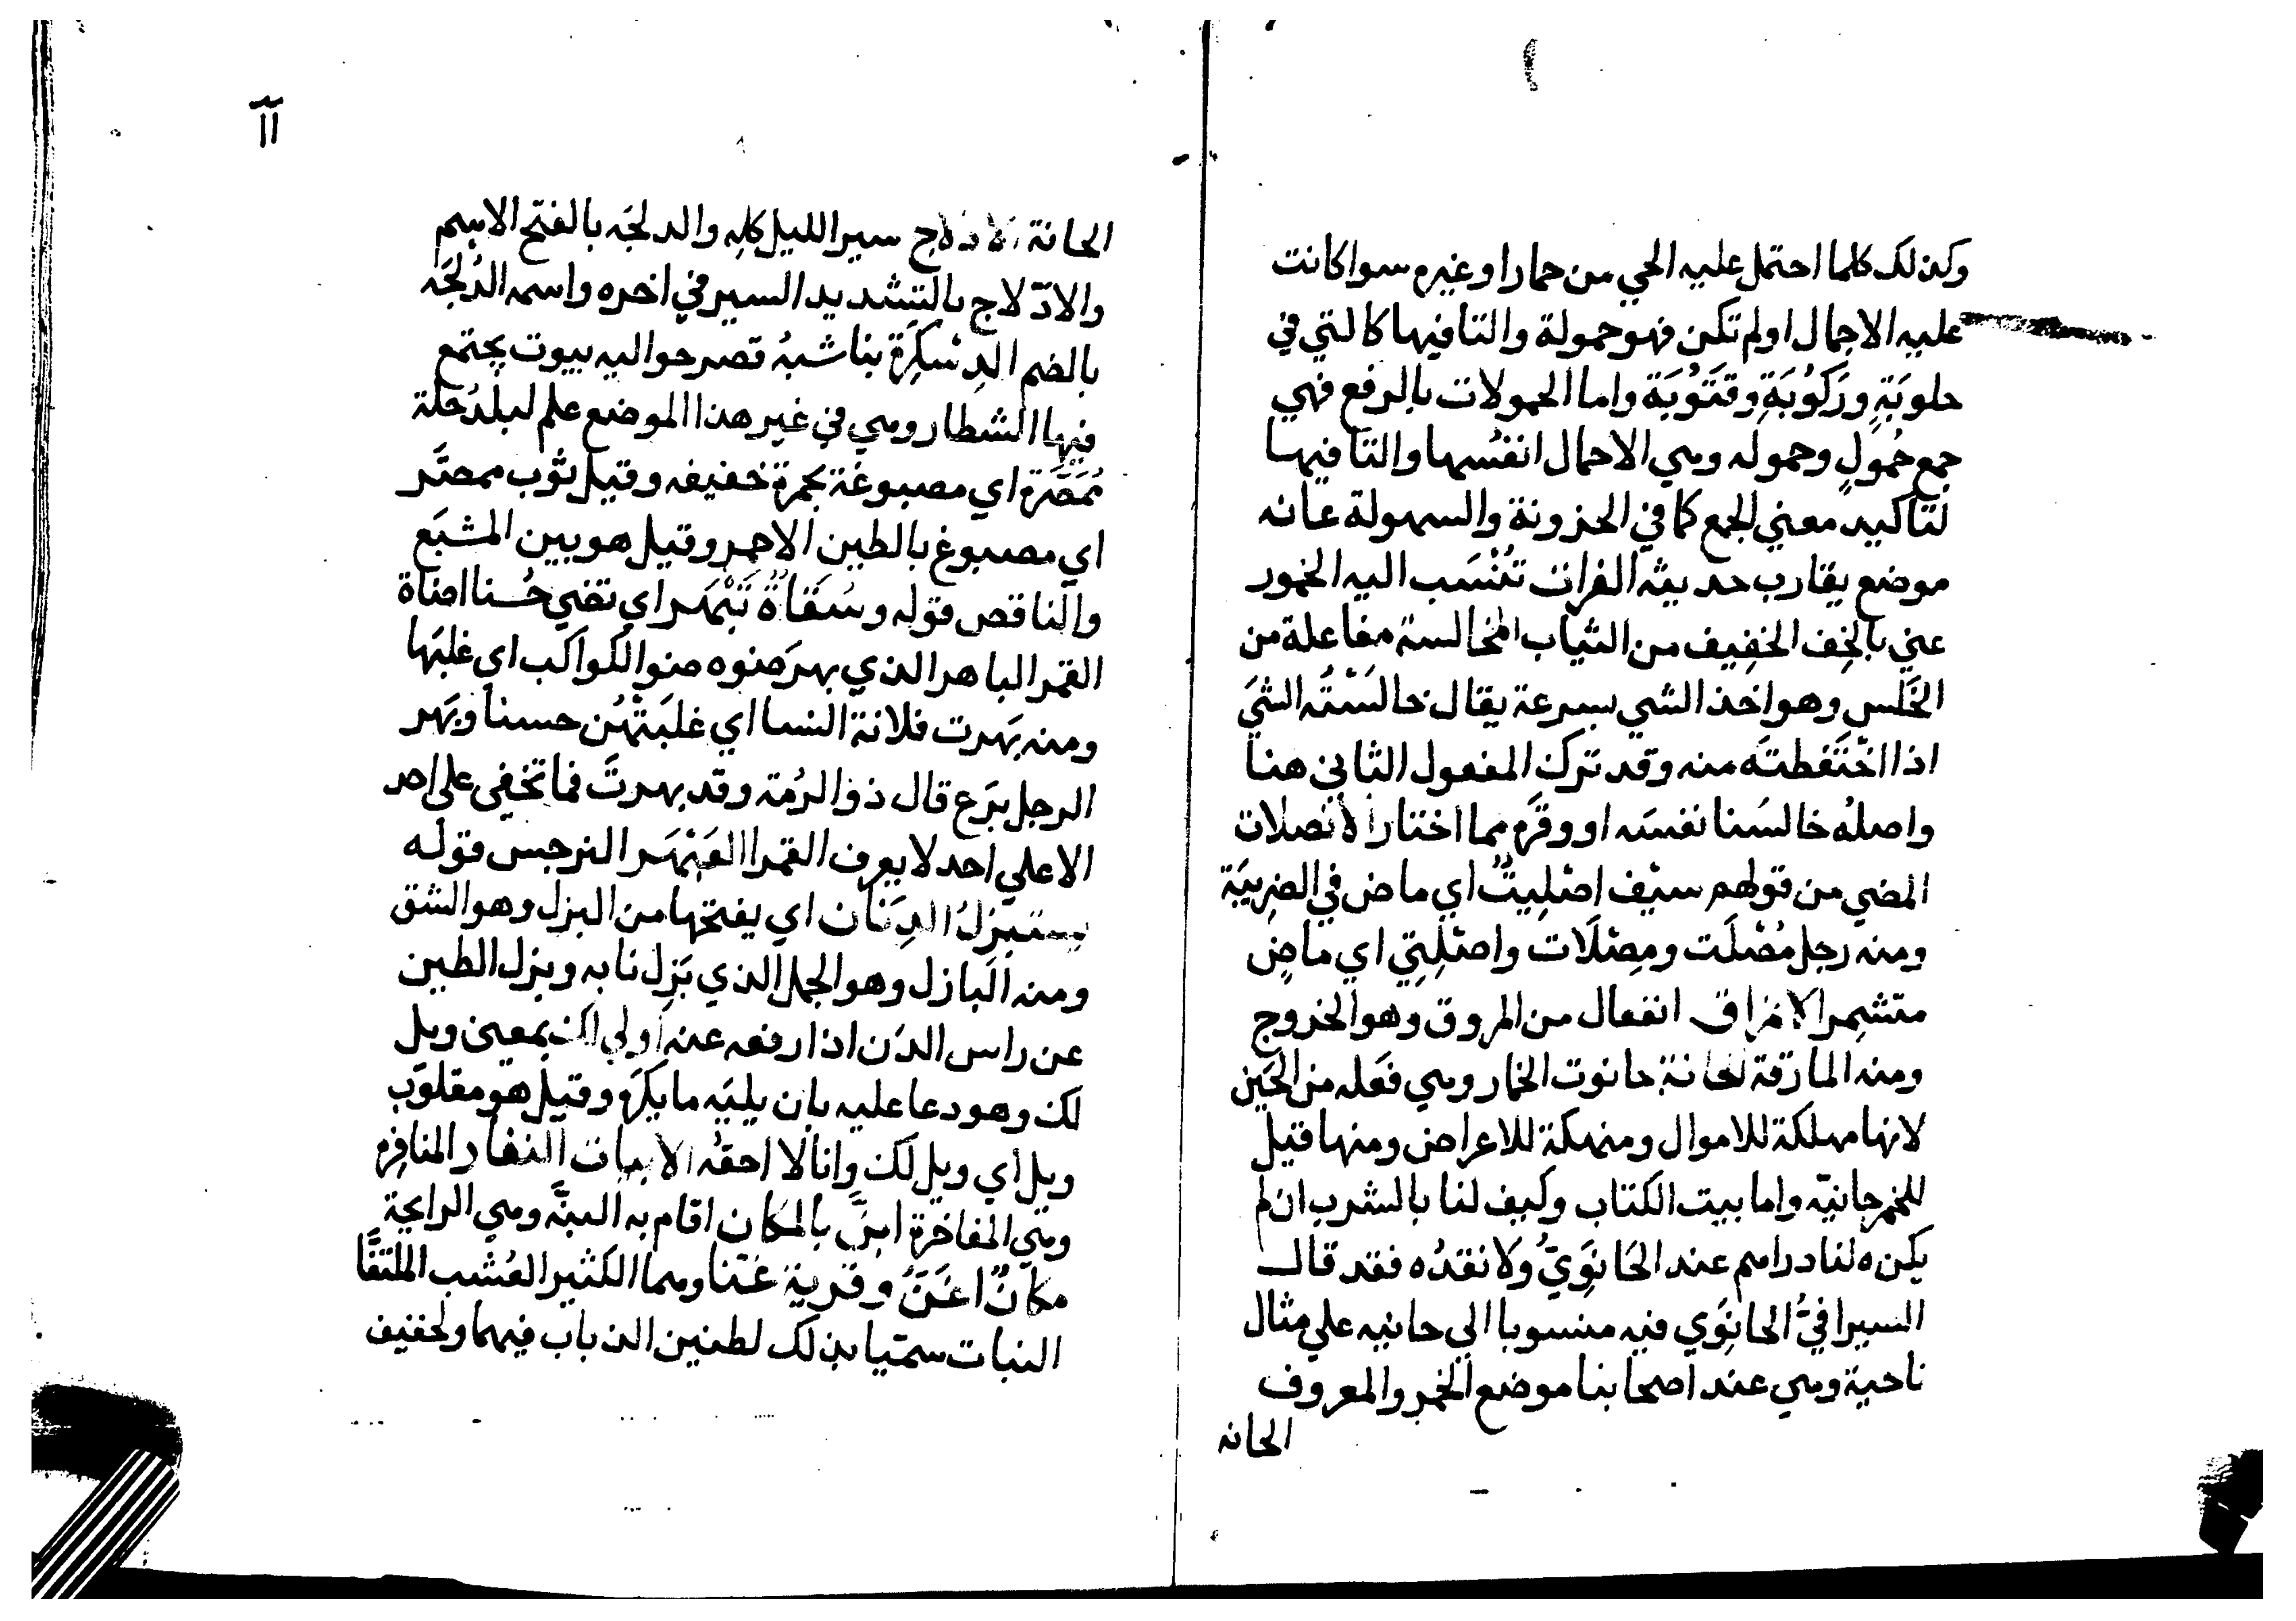 وكذلك كلما احتمل عليه الحي من حمار اوغيره سوا كانت
عليه الاحمال اولم تكن فهو حمولة والتا فيها كالتي في
حلوبَةٍ ورَكُوبَةٍ وقَتُوبَة واما الحمولات بالرفع فهي
جمع حُمولٍ وحموله وهي الاحمال انفُسها والتا فيها
لتاكيد معني الجمع كما في الحزونة والسهولة عانه
موضع يقارب حديثه الفرات تُنْسَب اليه الخمور
عني بالخِف الخفِيف من الثياب المخالسة مفاعلة من
الخَلس وهو اخذ الشي بسرعة يقال خالَسْتُه الشيَ
اذا اختَفطتَه منه وقد ترك المفعول الثاني هنا
واصلهُ خالسَنا نفسَه او وقَرَه مما اختار الانصلات
المضي من قولهم سيْف اصْلِيتٌ اي ماض في الضريبَة
ومنه رجل مُصْلَت ومِصْلَات واصْلِتِي اي ماضٍ
متشمِر الانمراق انفعال من المروق وهو الخروج
ومنه المارقة الحانة حانوت الخمار وهي فَعَله من الحَين
لانها مهلكة للاموال ومنهكة للاعراض ومنها قيل
للخمر حانيّه واما بيت الكتاب وكيف لنا بالشرب ان لم
يكن ه لنا دراهم عند الحَانَوِيِّ ولا نقدُه فقد قال
السيرافيُّ الحانَوِي فيه منسوبا الي حانيه علي مثال
ناحية وهي عند اصحابنا موضع الخمر والمعروف
الحانه
١١
الحانة الادلاج سير الليل كله والدلجَه بالفتح الاسم
والادّلاج بالتشديد السير في اخره واسمه الدُلجَه
بالضم الدِسْكِرَة بنا شبهُ قصر حواليه بيوت يجتمع
فيها الشطار وهي في غير هذا الموضع علم لبلد حلة
مُمَصَّرَة اي مصبوغة بحمرة خفيفه وقيل ثوب ممصَّر
اي مصبوغ بالطين الاحمر وقيل هو بين المشبَع
والناقص قوله وسُقاةٌ تَبْهَر اي تضي حُسنا اضاة
القمر الباهر الذي بهرَ ضوه ضو الكواكب اي غلبَها
ومنه بَهرت فلانة النسا اي غلبَتْهُن حسنا وبَهر
الرجل بَرَع قال ذو الرُمة وقد بهرتَ فما تخفى على احد
الا علي احد لا يعرف القمرا العَبْهَر النرجس قوله
يستبزلُ الدِنَان اي يفتحها من البزل وهو الشق
ومنه البازل وهو الجمل الذي بَزل نابه وبزل الطين
عن راس الدَن اذا رفعه عنه اولي لك بمعنى ويل
لك وهو دعا عليه بان يليَه ما يكرَه وقيل هو مقلوب
ويل اي ويل لك وانا لا احقُه الابيات النفار المنافره
وهي المفاخرة ابنَّ بالمكان اقام به البنَّه وهي الرايحة
مكانٌ اغَنُّ وقرية غنّا وهما الكثير العُشب الملتفَّا
النبات سمّيا بذلك لطنين الذباب فيهما ولحفيف